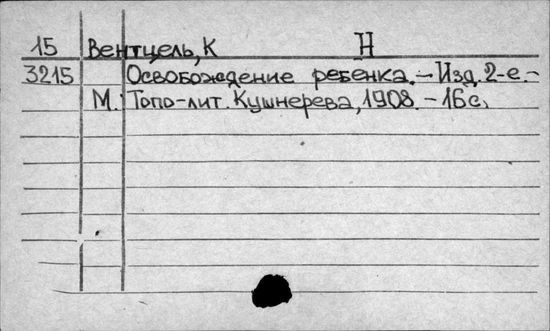 15 Вентцель, К Н
3215 Освобождение ребенка. – Изд. 2-е. –
М.: Топо-лит. Кушнерева, 1908. – 16 с.